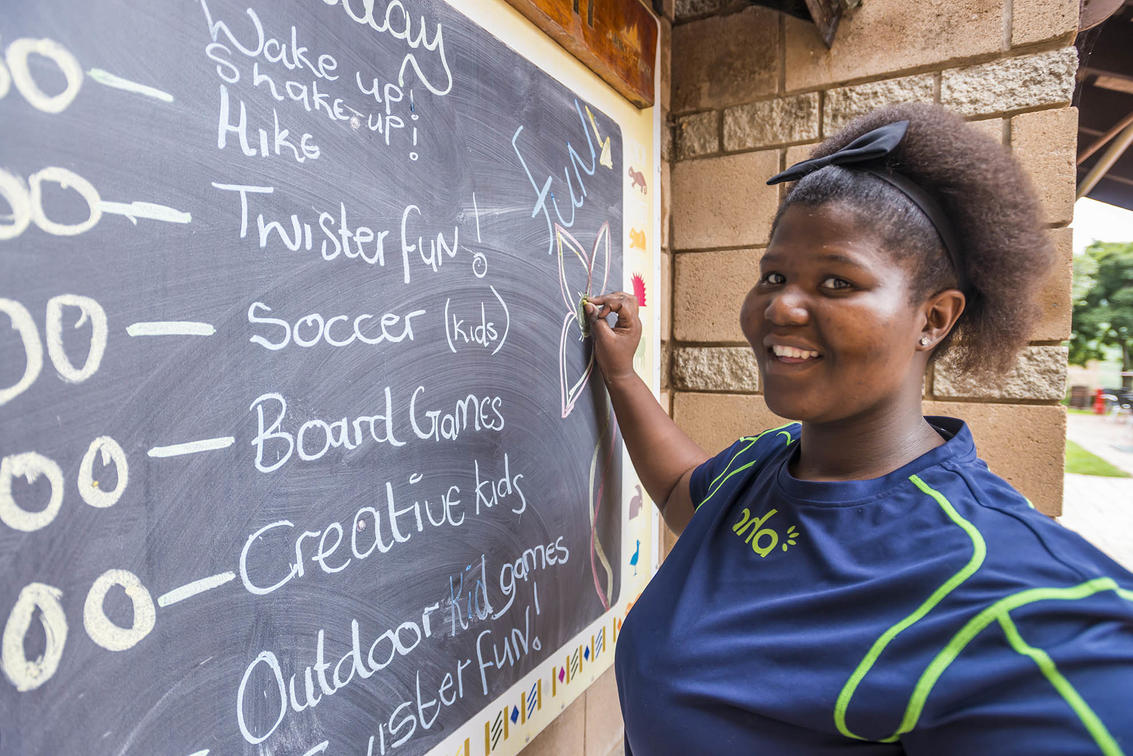 Wake up!
Shake-up!
Hike
00 —
Twister fun!
00 —
Soccer (kids)
00 —
Board Games
00 —
Creative kids
00 —
Outdoor kid games
Twister fun!
Fun!